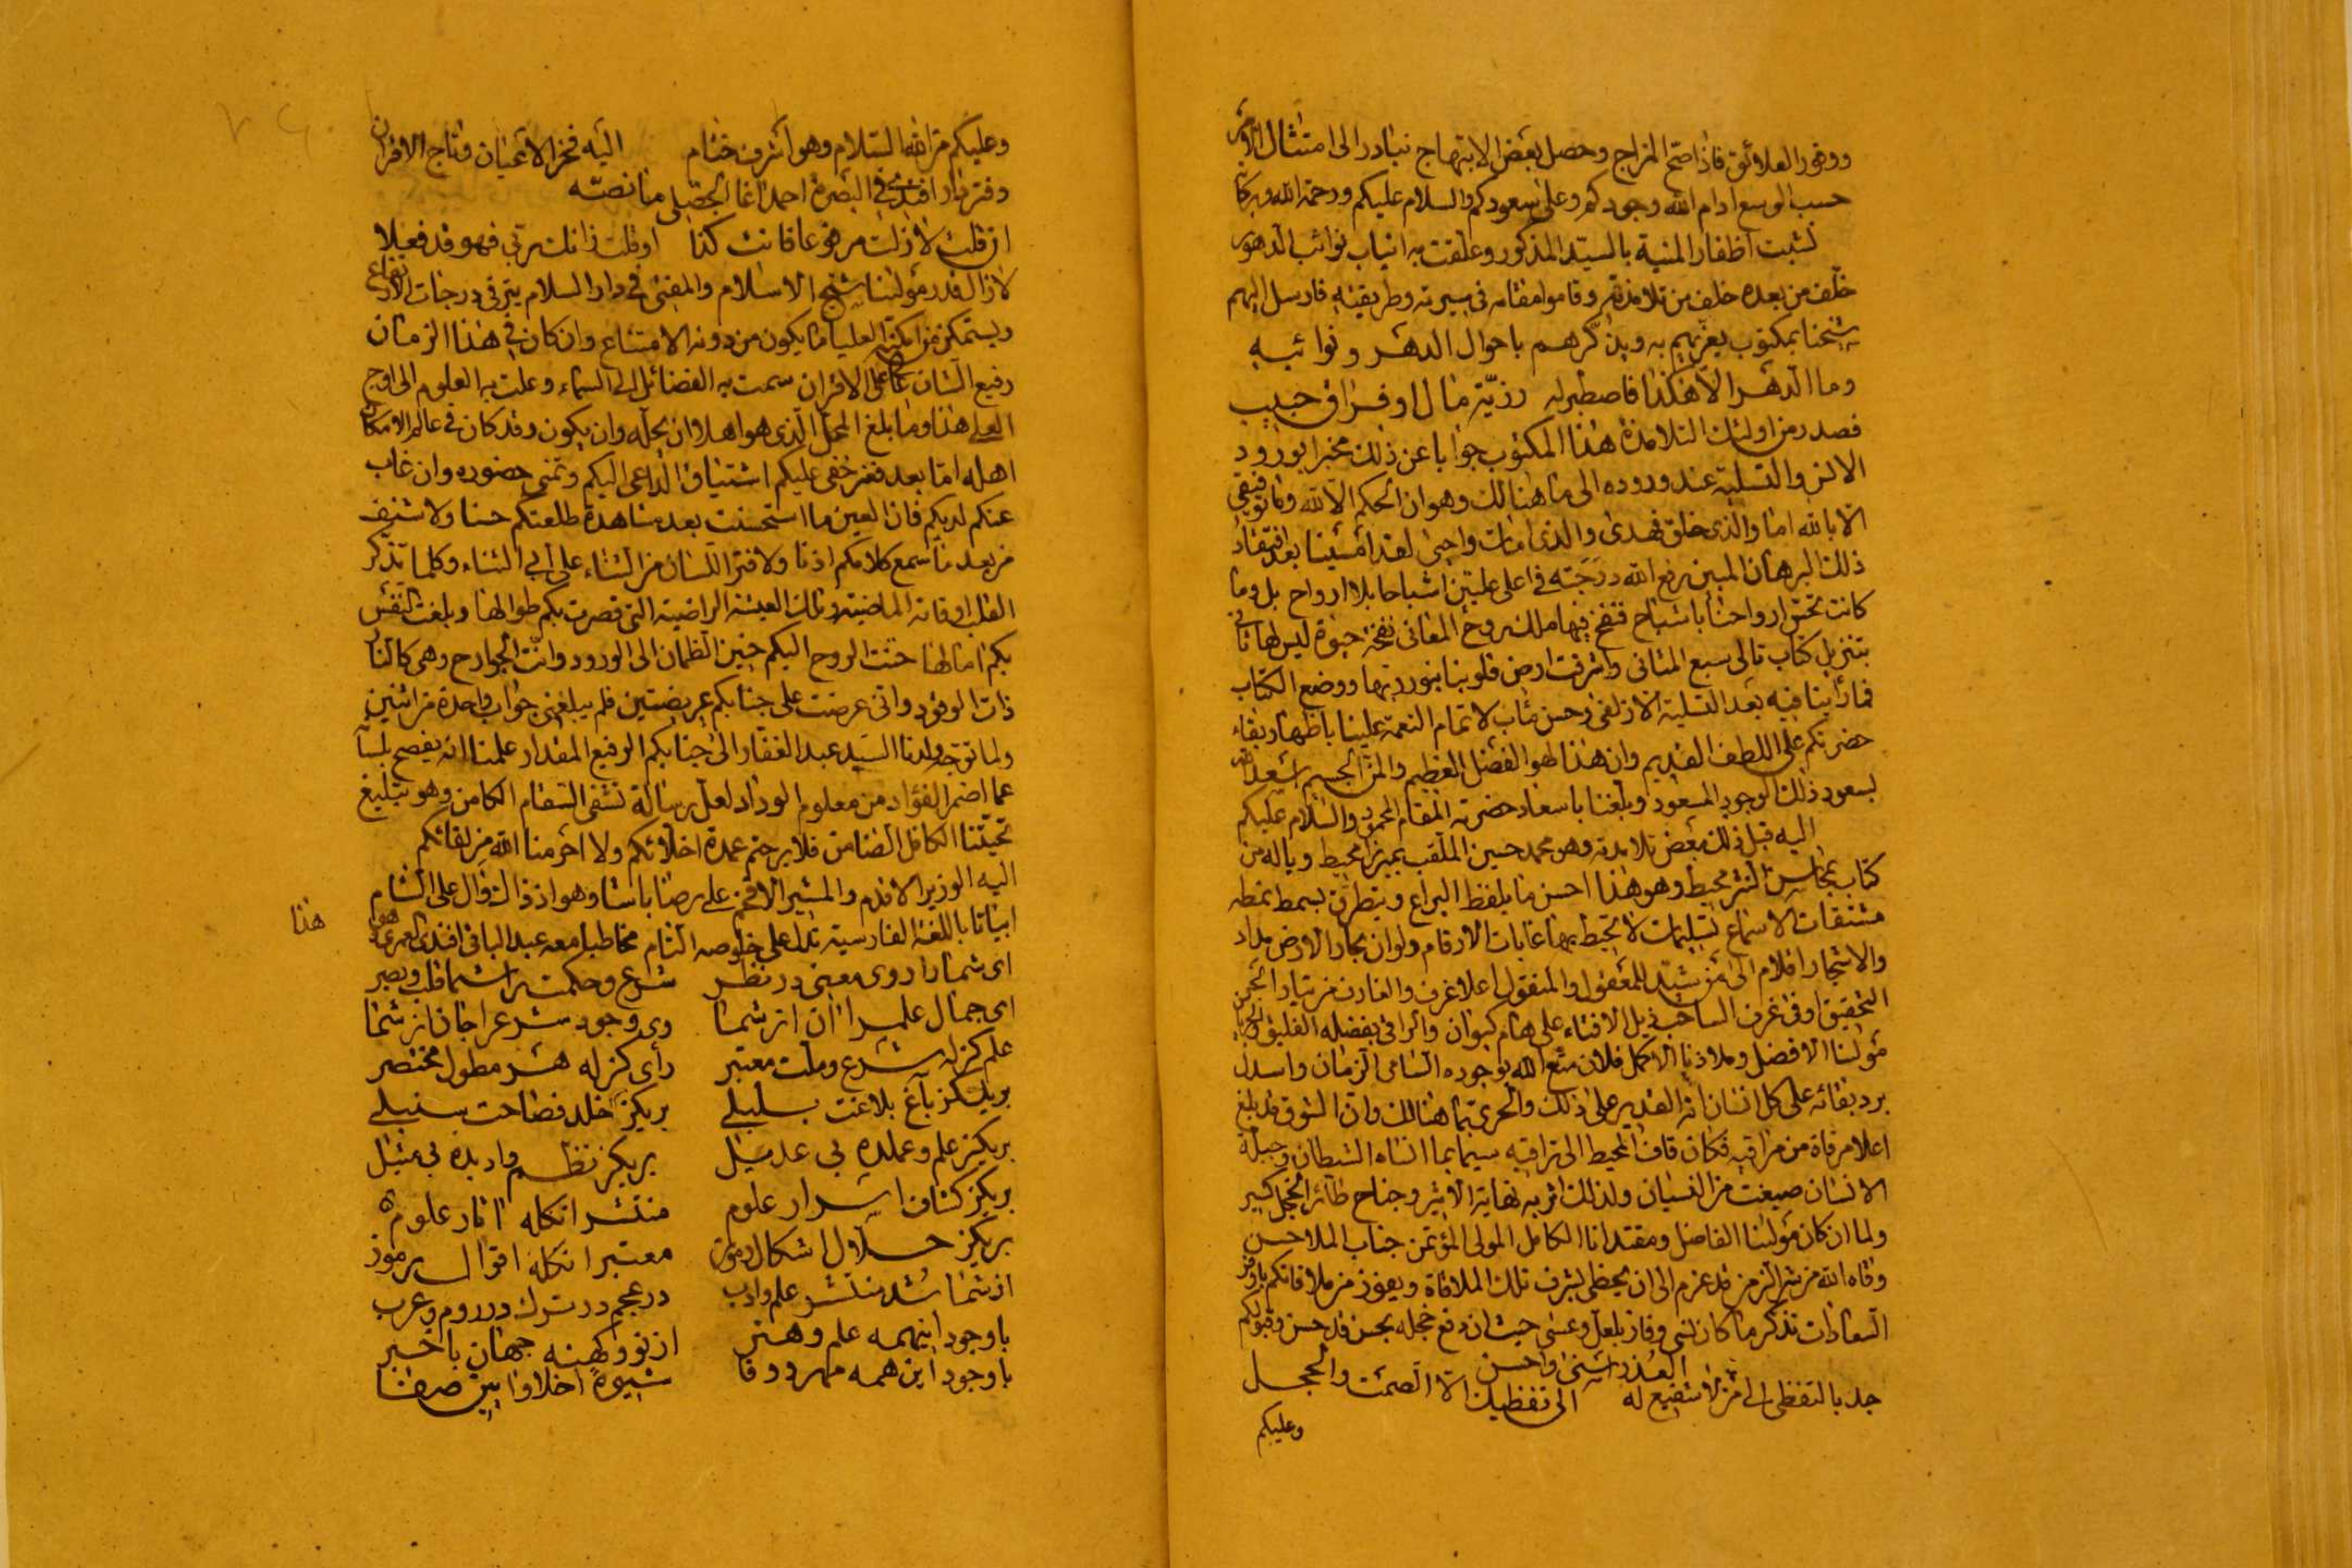 ووفور العلائق فاذا صح المزاج وحصل بعض الابتهاج نبادر الى امتثال الامر
حسب الوسع ادام الله وجودكم وعلى سعودكم والسلام عليكم ورحمة الله وبركاته
نشبت اظفار المنية بالسيد المذكور وعلقت به انياب نوائب الدهور
خلف من بعده خلف من تلامذته وقاموا مقامه في سيرته وطريقته فارسل اليهم
شيخنا بمكتوب يعزيهم به ويذكرهم باحوال الدهر ونوائبه
وما الدهر الا هكذا فاصطبر له رزية مال او فراق حبيب
فصدر من اولئك التلامذة هذا المكتوب جوابا عن ذلك مخبرا بورود
الانس والتسلية عند وروده الى ما هنالك وهو ان الحكم الا لله وما توفيقي
الا بالله اما والذي خلق فهدى والذي امات واحيى لقد امسينا بعد افتقاد
ذلك البرهان المبين رفع الله درجته في اعلى عليين اشباحا بلا ارواح بل وما
كانت تحس ارواحنا باشباح فنفخ فيها ملك روح المعاني نفخة حيوة ليس لها ثاني
بتنزيل كتاب تالي سبع المثاني واشرقت ارض قلوبنا بنور ربها ووضع الكتاب
فما رأينا فيه بعد التسلية الا زلفى وحسن مئاب لاتمام النعمة علينا باظهار بقاء
حضرتكم على اللطف القديم وان هذا لهو الفضل العظيم والمن الجسيم
بسعود ذلك الوجود المسعود وبلغنا باسعاد حضرته المقام المحمود والسلام عليكم
اليه قبل ذلك بعض تلامذته وهو محمد حسين الملقب بميرزا محيط وياله من
كتاب بمحاسن النثر محيط وهو هذا احسن ما يلفظ اليراع ويتطرق بسمط نمطه
مشنفات الاسماع تسليمات لا تحيط بها غايات الارقام ولو ان بحار الارض مداد
والاشجار اقلام الى من شيد للمعقول والمنقول اعلا غرف والغارف من تيار الحمن
التحقيق اوفى غرف الساحب ذيل الافتاء على هام كيوان والراقي بفضله
مولنا الافضل وملاذنا الاكمل فلان متع الله بوجوده السامي الزمان واسدل
برد بقائه على كل انسان انه القدير على ذلك والحري بما هنالك وان الشوق قد بلغ
اعلا مرقاة من مراقيه فكان قاف المحيط الى تراقيه سيما بما انساه الشيطان وجبلة
الانسان صيغت من النسيان ولذلك اثر به نهاية الاثير وجناح طائر الخجل كسير
ولما ان كان مولنا الفاضل ومقتدانا الكامل المولى المؤتمن جناب الملا حسن
وقاه الله من شر الزمن قد عزم الى ان يحظى بشرف تلك الملاقاة ويفوز من ملاقاتكم باوفر
السعادات تذكر ما كان نسي وفاز بلعل وعسى حيث ان دفع خجله بحسن
العذر اسنى واحسن
جد بالتفظل لي من لا شفيع له الى تفظيلك الا الصمت والخجل
وعليكم
وعليكم من الله السلام وهو اشرف ختام اليه فخر الاعيان وتاج الاقران
دفتردار افندي في البصرة احمد اغا ما نصه
ان قلت لا زلت مرفوعا فانت كذا او قلت زانك ربي فهو قد فعلا
لا زال قدر مولنا شيخ الاسلام والمفتي في دار السلام يترقى درجات الارتفاع
ويستمكن من امكنة العليا ما يكون من دونه الامتناع وان كان في هذا الزمان
رفيع الشان على الاقران سمت به الفضائل الى السماء وعلت به العلوم الى اوج
العلى هذا وما بلغ المحل الذي هو اهل ان يحله وان يكون وقد كان في عالم الامكان
اهله اما بعد فغير خفي عليكم اشتياق الداعي اليكم وتمني حضوره وان غاب
عنكم لديكم فان العين ما استحسنت بعد مشاهدة طلعتكم حسنا ولا شنف
من بعد ما سمع كلامكم اذنا ولا فتر اللسان من الثناء على ابي الثناء وكلما تذكر
القلب اوقاته الماضية وتلك العيشة الراضية التي قصرت بكم طوالها وبلغت النفس
بكم امالها حنت الروح اليكم حنين الظمان الى الورود وانت الجوارح وهي كالنار
ذات الوقود واني عرضت على جنابكم عريضتين فلم يبلغني جواب واحدة من اثنين
ولما توجه ولدنا السيد عبد الغفار الى جنابكم الرفيع المقدار علمنا انه يفصح بلسانه
عما اضمر الفؤاد من معلوم الوداد لعل رسالة تشفي السقام الكامن وهو بتبليغ
تحيتنا الكافل الضامن فلا برحتم عمدة اخلائكم ولا احرمنا الله من لقائكم
اليه الوزير الاقدم والمشير الافخم علي رضا باشا وهو اذ ذاك وال على الشام
ابياتا باللغة الفارسية تدل على خلوصه التام مخاطبا معه عبد الباقي افندي العمري وهو
هذا
اي شما را روي معنى در نظر شرع وحكمت را شما قلب وبصر
اي جمال علم را آن از شما وي وجود شرع را جان از شما
علم كز له شرع وملت معتبر رأى كز له هر مطول مختصر
بر يكز باغ بلاغت بلبلي بر يكز خلد فصاحت سنبلي
بر يكز علم وعمله بى عديل بر يكز نظم وادبده بى مثيل
بر يكز كشاف اسرار علوم منتشر انكله اثار علوم
بر يكز حلال اشكال رموز معتبر انكله اقوال رموز
از شما شد منتشر علم وادب در عجم در ترك در روم وعرب
با وجود اينهمه علم وهنر از نو وكهنه جهان باخبر
با وجود اين همه مهر ووفا شيوه اخلاق واين صفا